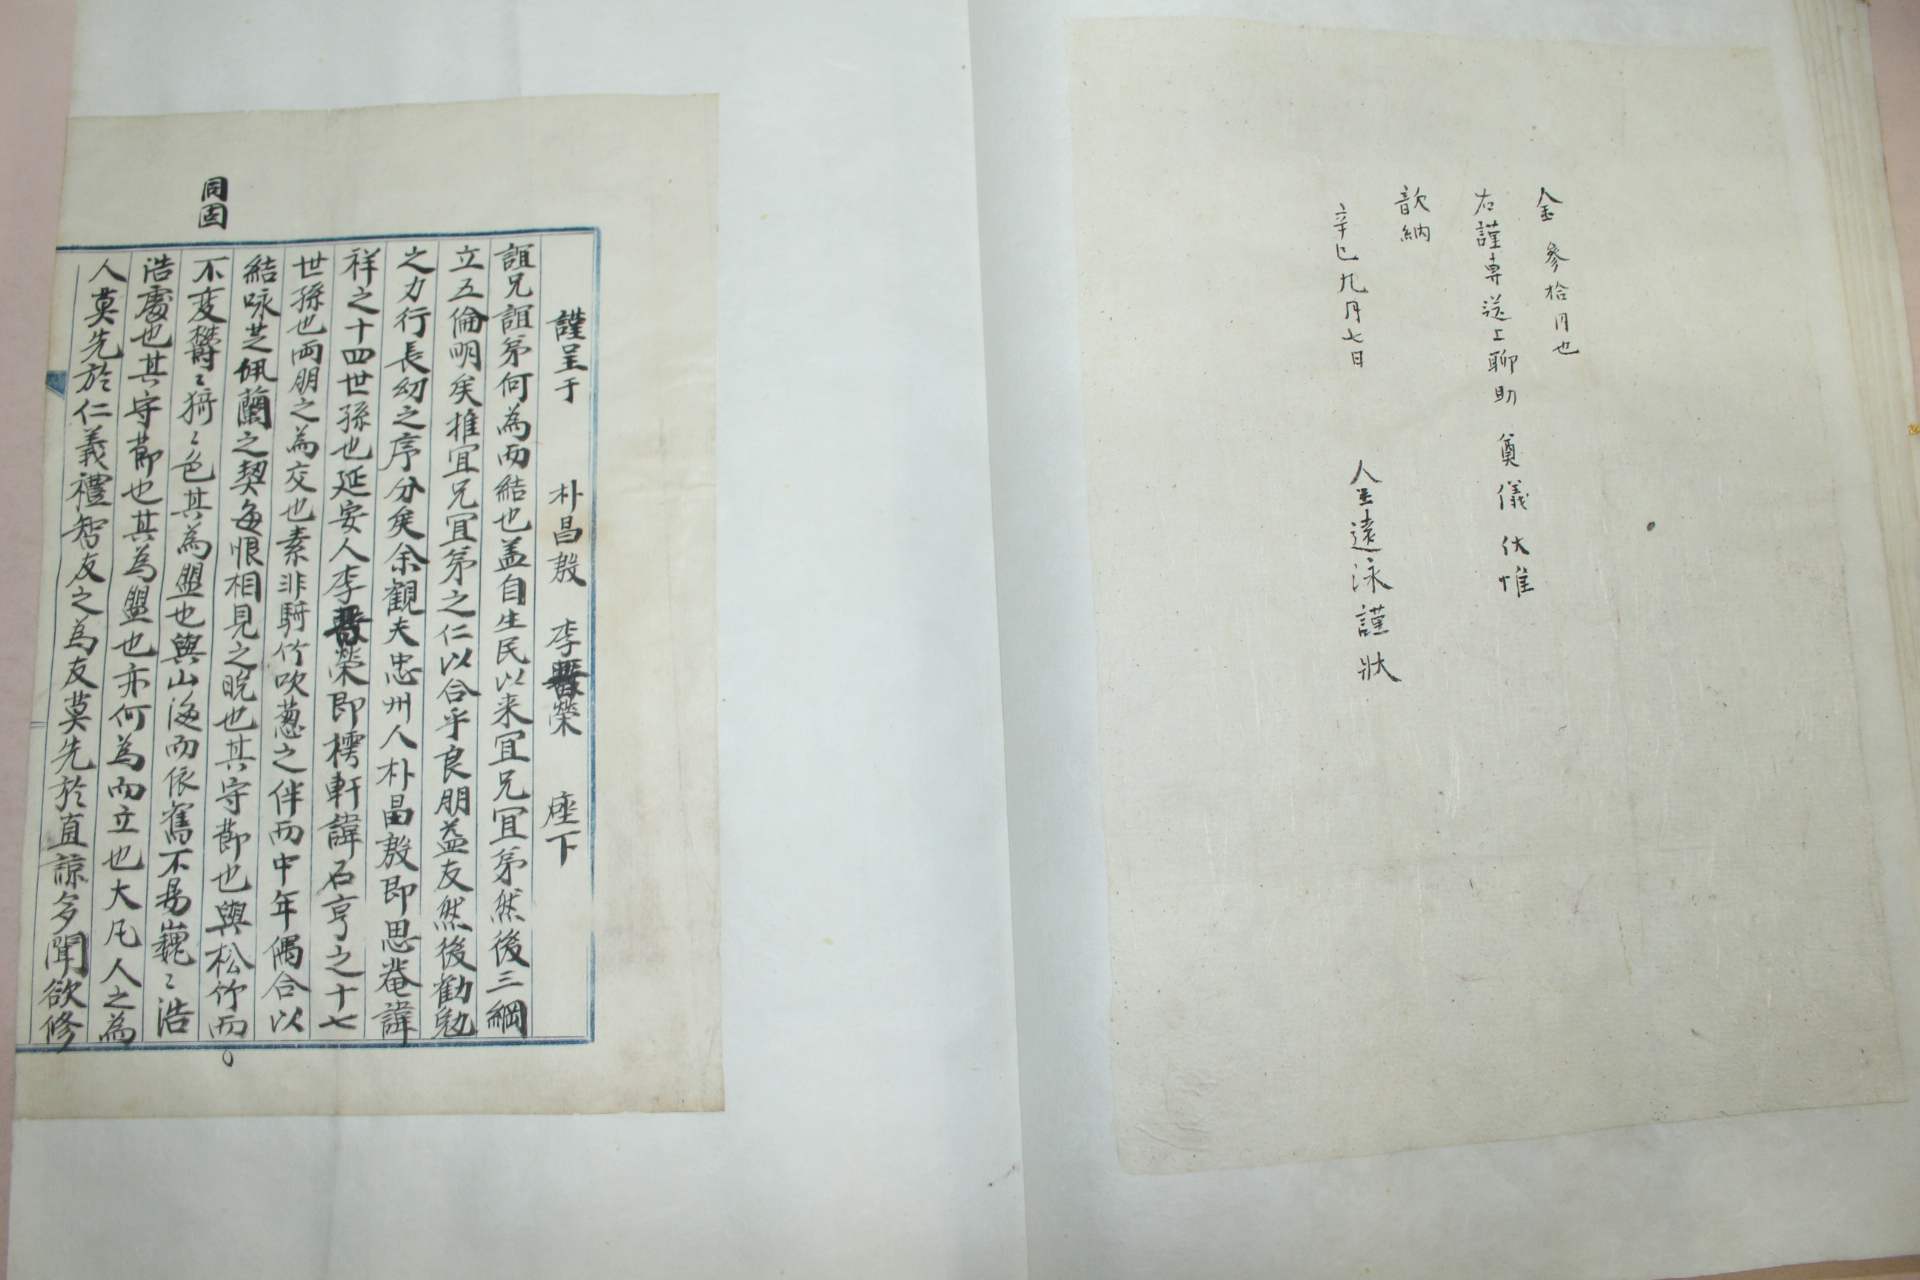 金參拾円也
右謹專送上聊助 奠儀伏惟
歆納
辛巳九月七日 人呈遠泳謹狀
謹呈于 朴昌殷 李晉榮 座下
誼兄誼弟何為而結也盖自生民以来冝兄冝弟然後三綱
立五倫明矣推冝兄冝弟之仁以合乎良朋益友然後勸勉
之力行長幼之序分矣余觀夫忠州人朴昌殷即思菴諱
祥之十四世孫也延安人李晉榮即樗軒諱石亨之十七
世孫也両朋之為交也素非騎竹吹葱之伴而中年偶合以
結咏芝佩蘭之契每恨相見之晩也其守節也與松竹而
不変欝〻猗〻色其為盟也與山海而依舊不易巍〻浩
浩處也其守節也其為盟也亦何為而立也大凡人之為
人莫先於仁義禮智友之為友莫先於直諒多聞欲修
同固